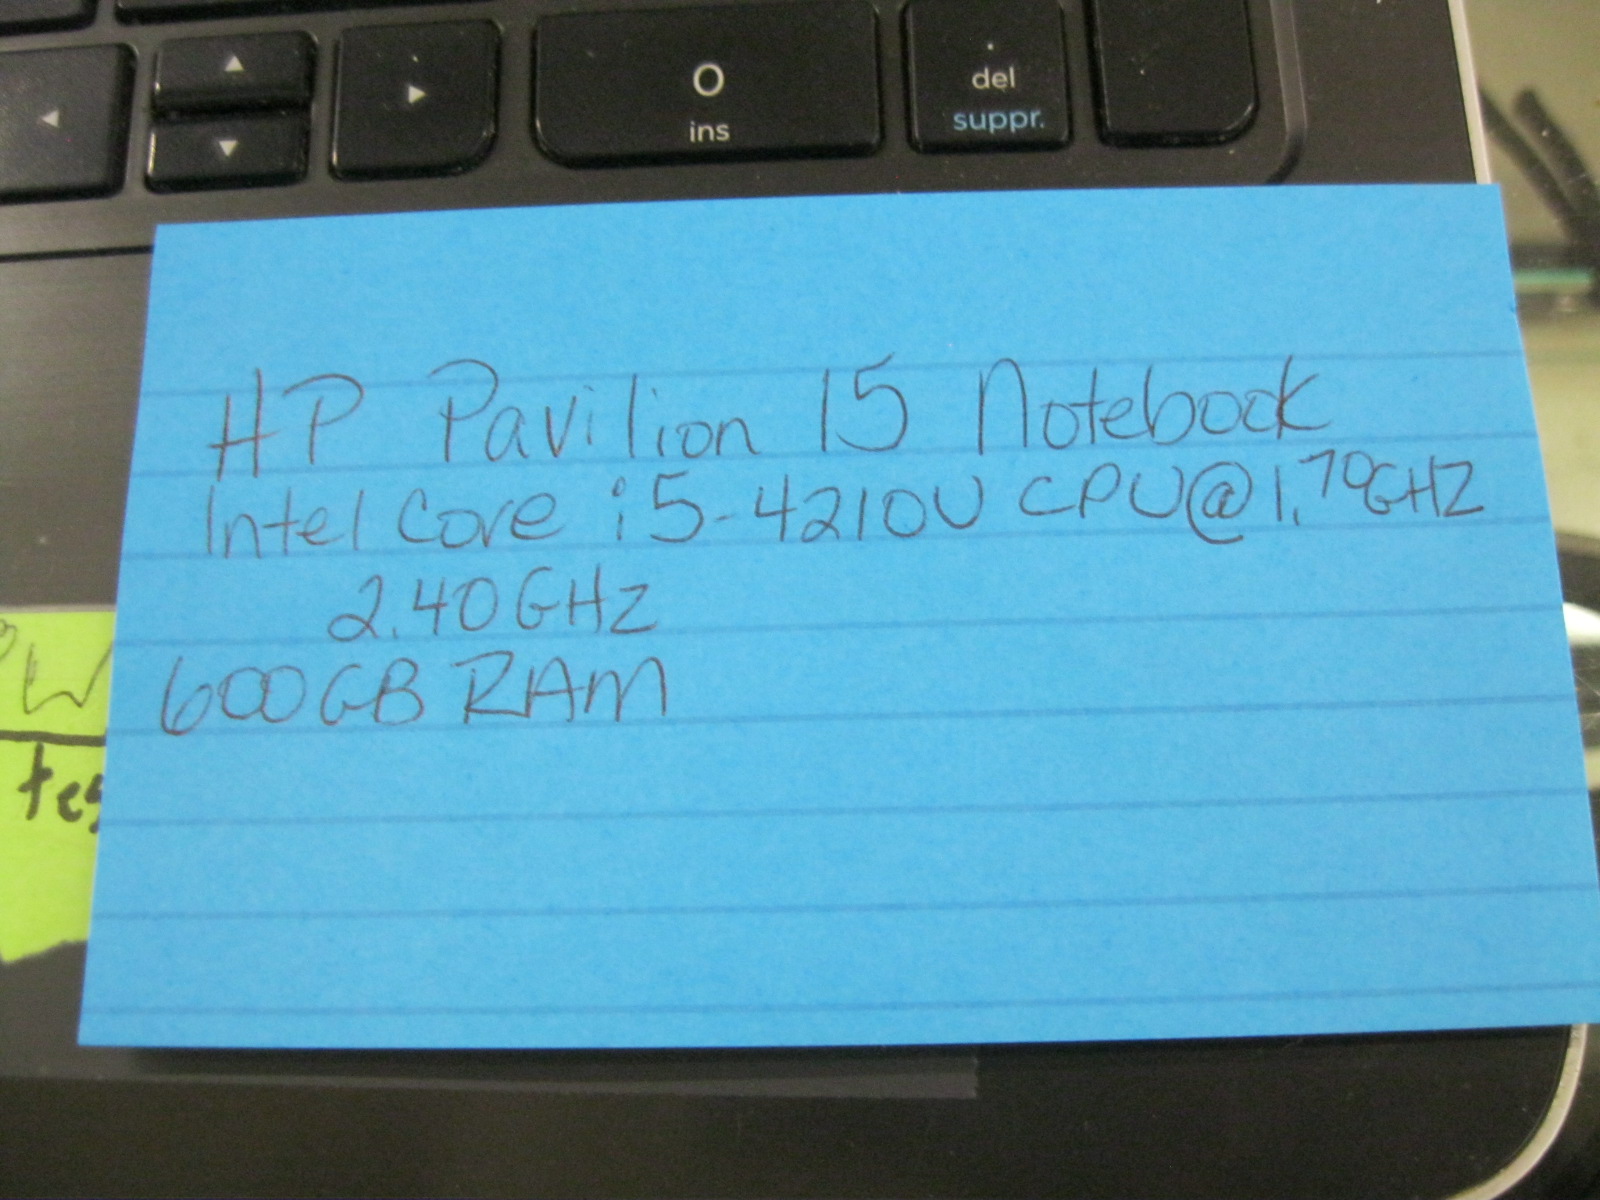 O
ins
del
suppr.
HP Pavilion 15 Notebook
Intel Core i5-4210U CPU@1.70GHZ
2.40GHz
600GB RAM
W
tes